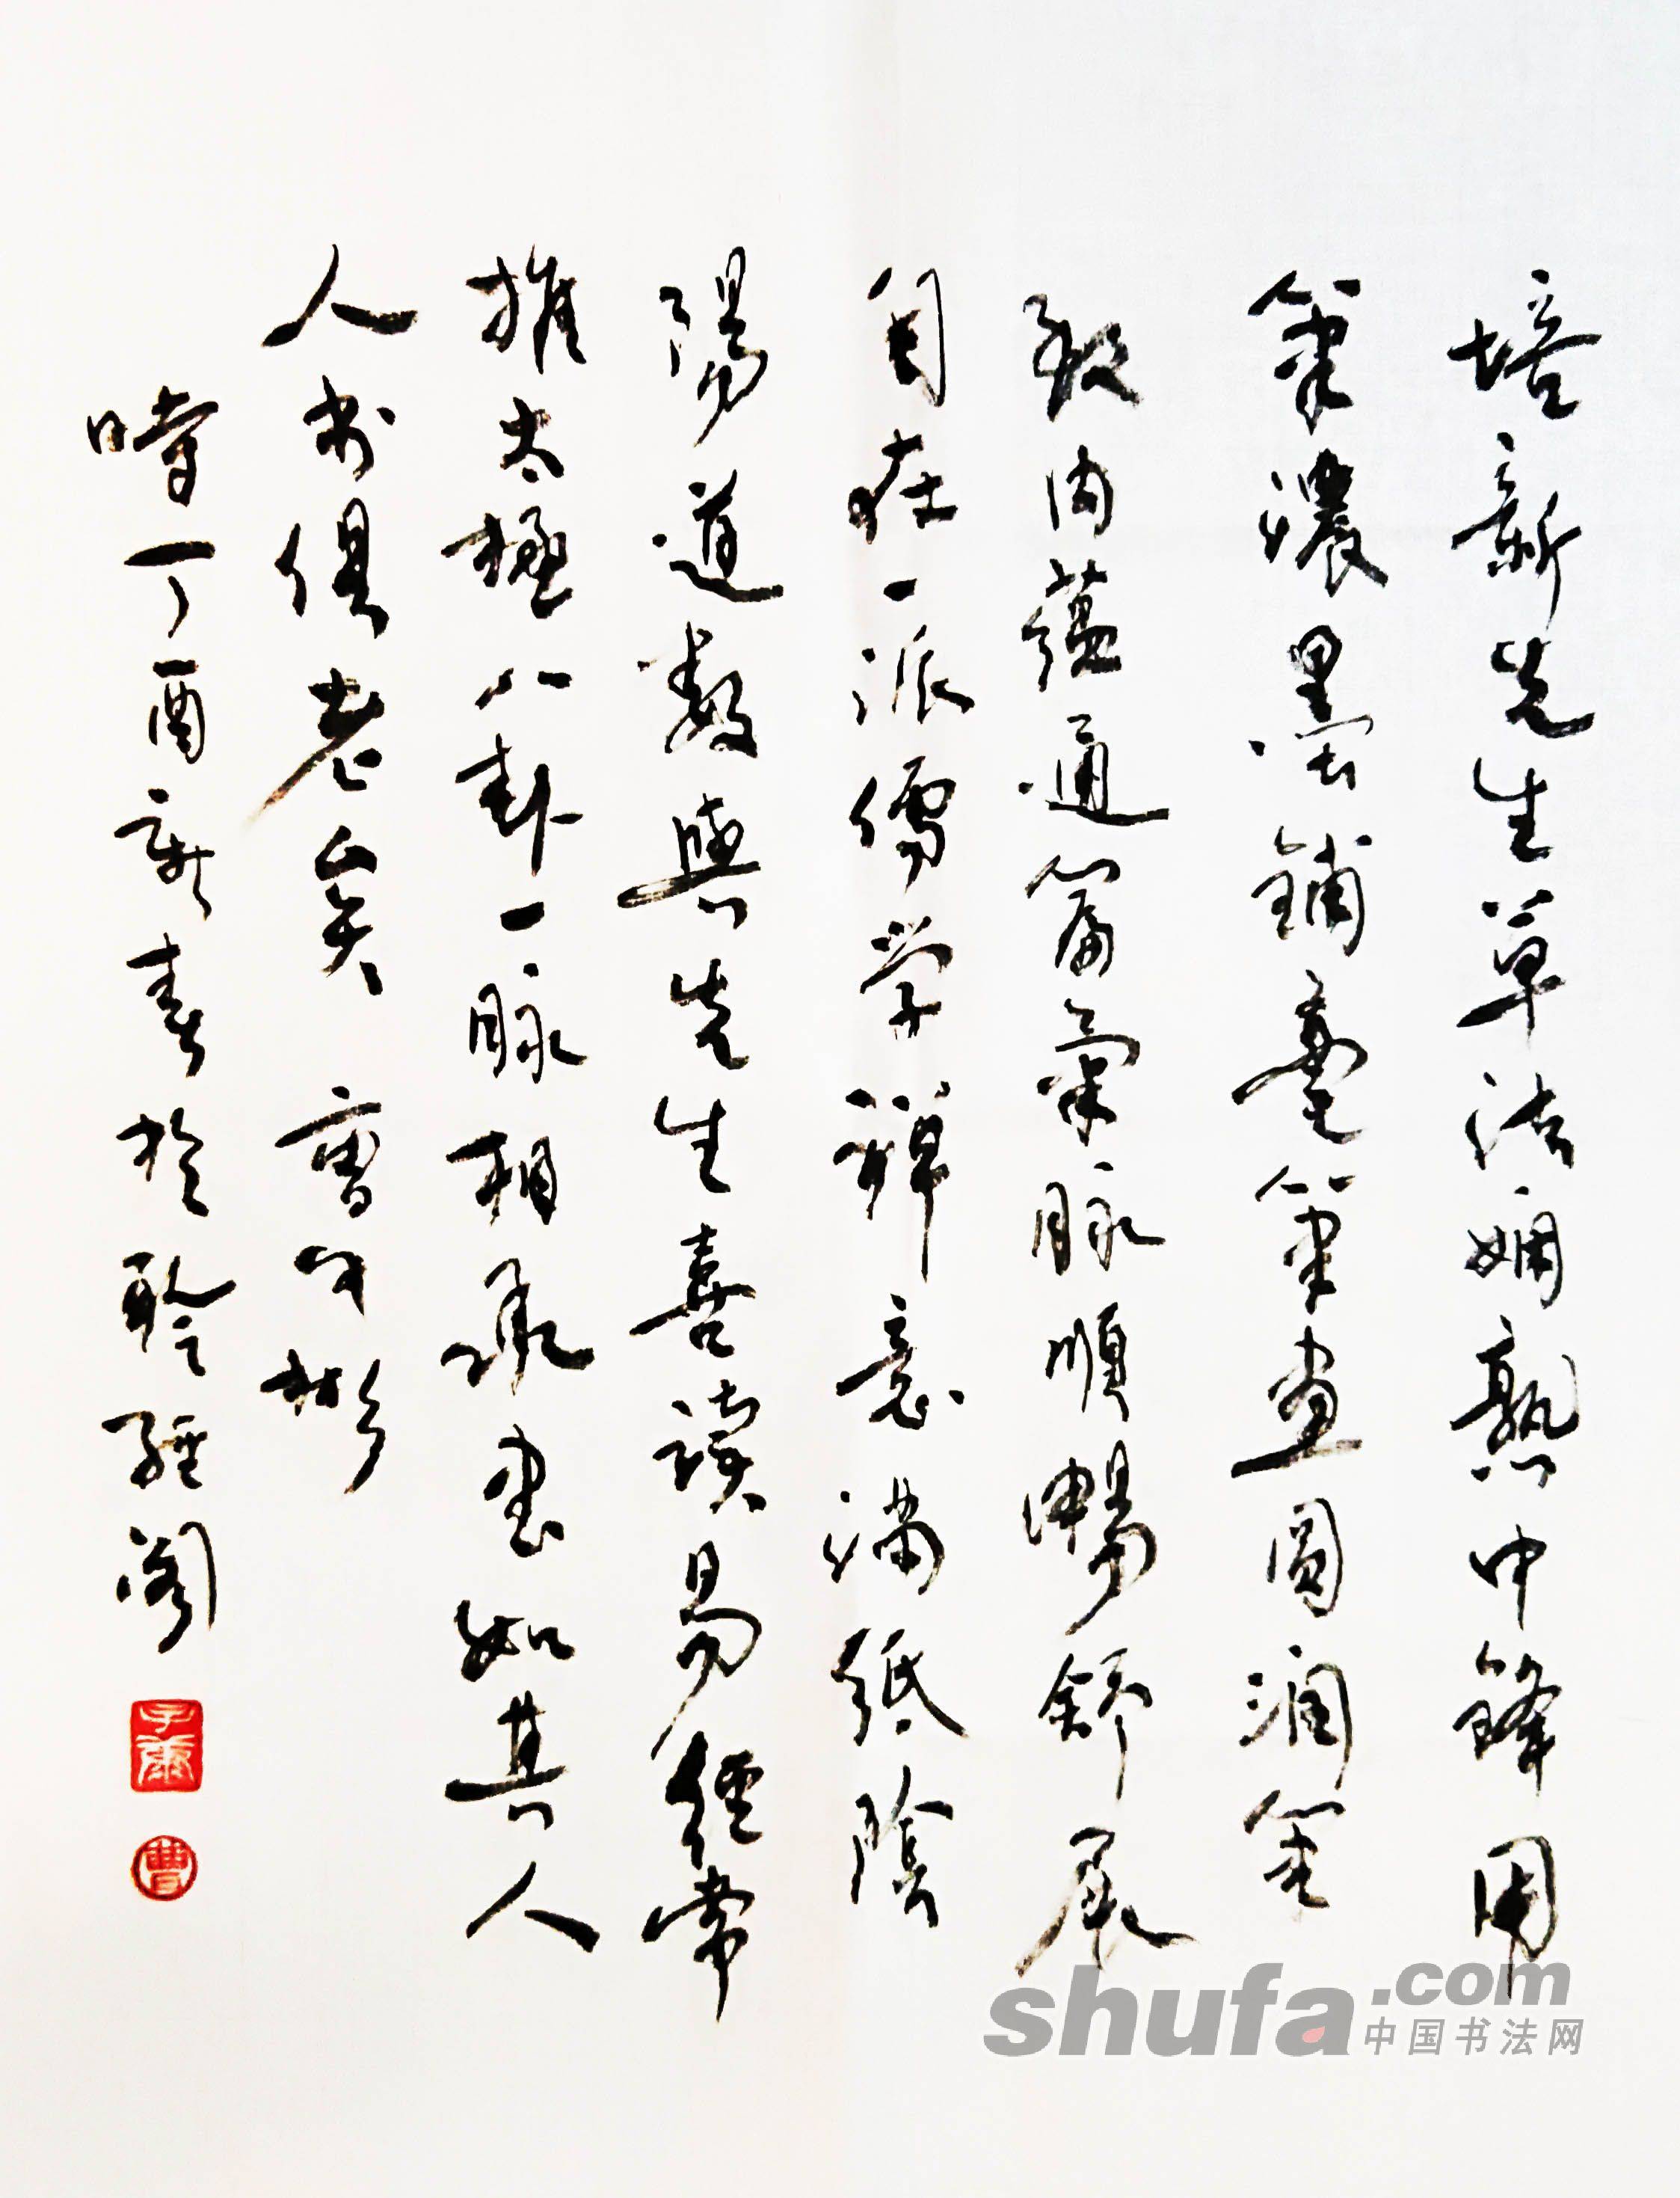 培新先生草法嫻熟中鋒用
筆濃墨鋪毫筆畫圓潤筆
致内蘊通篇氣脉順暢舒展
自在一派儒学禅意满紙陰
陽道數與先生喜讀易經常
推太極八卦一脉相承書如其人
人書俱老矣 曹 彬
時丁酉新春於聆 閣
曹
shufa.com
中国书法网